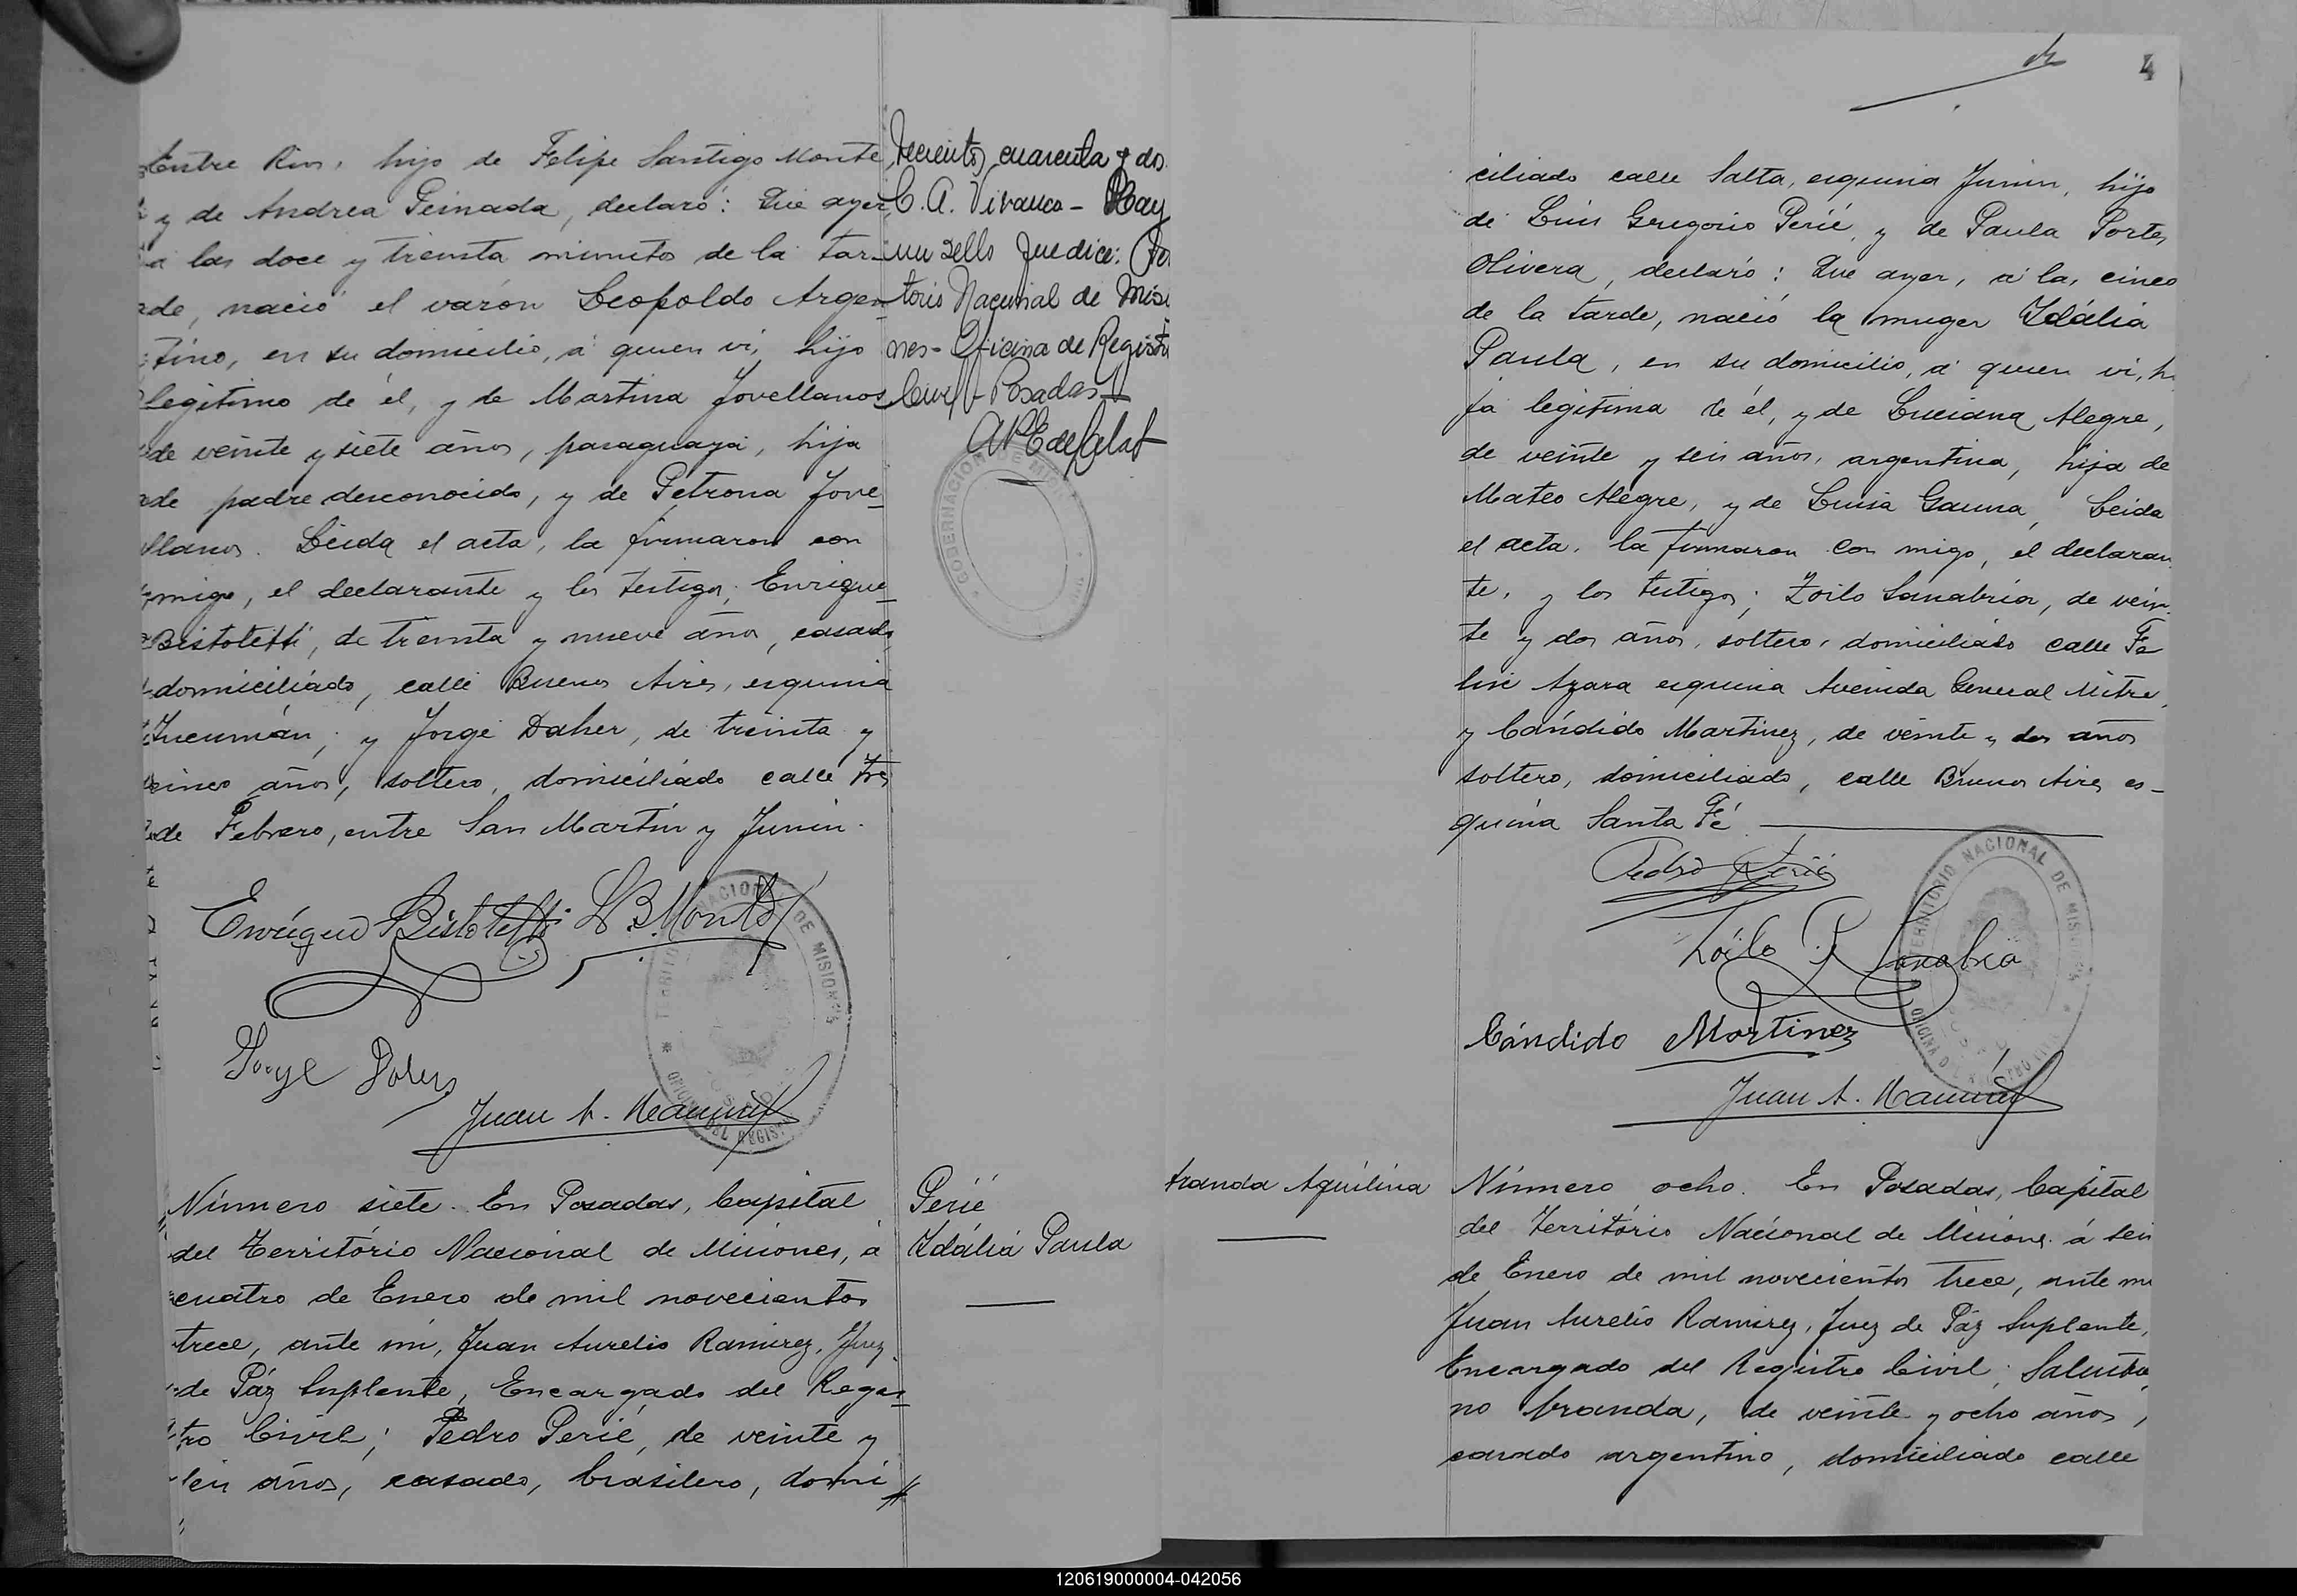 Entre Rios, hijo de Felipe Santiago Monte
y de Andrea Peinada, declaró: Que ayer
a las doce y treinta minutos de la tar-
de, nació el varón Leopoldo Argen-
tino, en su domicilio, á quien vi, hijo
legitimo de él, y de Martina Jovellanos
de veinte y siete años, paraguaya, hija
de padre desconocido, y de Petrona Jove-
llanos. Leida el acta, la firmaron con
migo, el declarante y los testigos; Enrique
Bistoletti, de treinta y nueve años, casado,
domiciliado, calle Buenos Aires, esquina
Tucumán; y Jorge Daher, de treinta y
cinco años, soltero, domiciliado calle tres
de Febrero, entre San Martin y Junin.
Enrique Bistoletti L B. Monte
Jorge
Juan A. Ramirez
TERRITORIO NACIONAL DE MISIONES
OFICINA DEL REGISTRO
Número siete. En Posadas, Capital
del Território Nacional de Misiones, á
cuatro de Enero de mil novecientos
trece, ante mi, Juan Aurelio Ramirez, Juez
de Páz Suplente, Encargado del Regis-
tro Civil; Pedro Perié, de veinte y
seis años, casado, brasilero, domi
cuarenta y dos.
C. A. Vivanco - Hay
un sello que dice:
torio Nacional de Misi
nes - Oficina de Registro
Civil - Posadas
GOBERNACION DE MISIONES
Perié
Idália Paula
4
ciliado calle Salta, esquina Junin, hijo
de Luis Gregorio Perié, y de Paula Portes
Olivera, declaró: Que ayer, á las cinco
de la tarde, nació la muger Idália
Paula, en su domicilio, á quien vi, hi
ja legitima de él, y de Luciana Alegre,
de veinte y seis años, argentina, hija de
Mateo Alegre, y de Luisa Gauna, Leida
el acta, la firmaron con migo, el declaran
te, y los testigos; Zoilo Sanabria, de vein-
te y dos años, soltero, domiciliado calle Fe
lix Azara esquina Avenida General Mitre,
y Cándido Martinez, de veinte y dos años
soltero, domiciliado, calle Buenos Aires es-
quina Santa Fé
Pedro Perié
Zoilo R Sanabria
Cándido Martinez
Juan A. Ramirez
TERRITORIO NACIONAL DE MISIONES
Aranda Aquilina
Número ocho. En Posadas, Capital
del Território Nacional de Misiones á seis
de Enero de mil novecientos trece, ante mi
Juan Aurelio Ramirez, Juez de Páz Suplente,
Encargado del Registro Civil; Salustia
no Aranda, de veinte y ocho años,
casado argentino, domiciliado calle
120619000004-042056